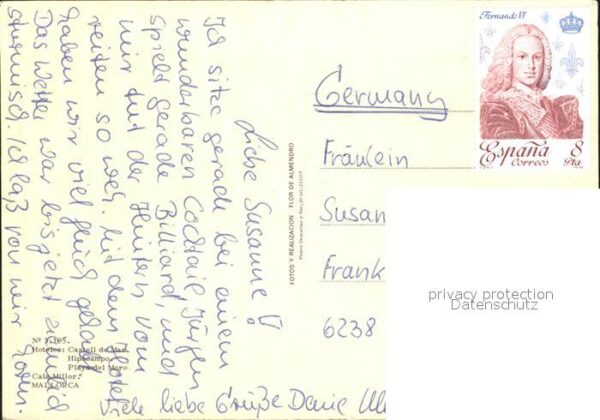 Liebe Susanne!
Ich sitze gerade bei einem
wunderbaren Cocktail, Jürgen
spielt gerade Billiard, und
mir tut der Hintern vom
reiten so weh. Mit dem Hotel
haben wir viel Glück gehabt.
Das Wetter war bisjetzt
stürmisch. Ich laß von mir hören.
Viele liebe Grüße Deine
Nº 3.105.
Hoteles: Castell de Mar.
Hipocampo.
Playa del Moro.
Cala Millor.
MALLORCA
FOTOS Y REALIZACION FLOR DE ALMENDRO
Fernando VI
España 8
Correos Pta.
Germany
Fräulein
Susan
Frank
6238
privacy protection
Datenschutz